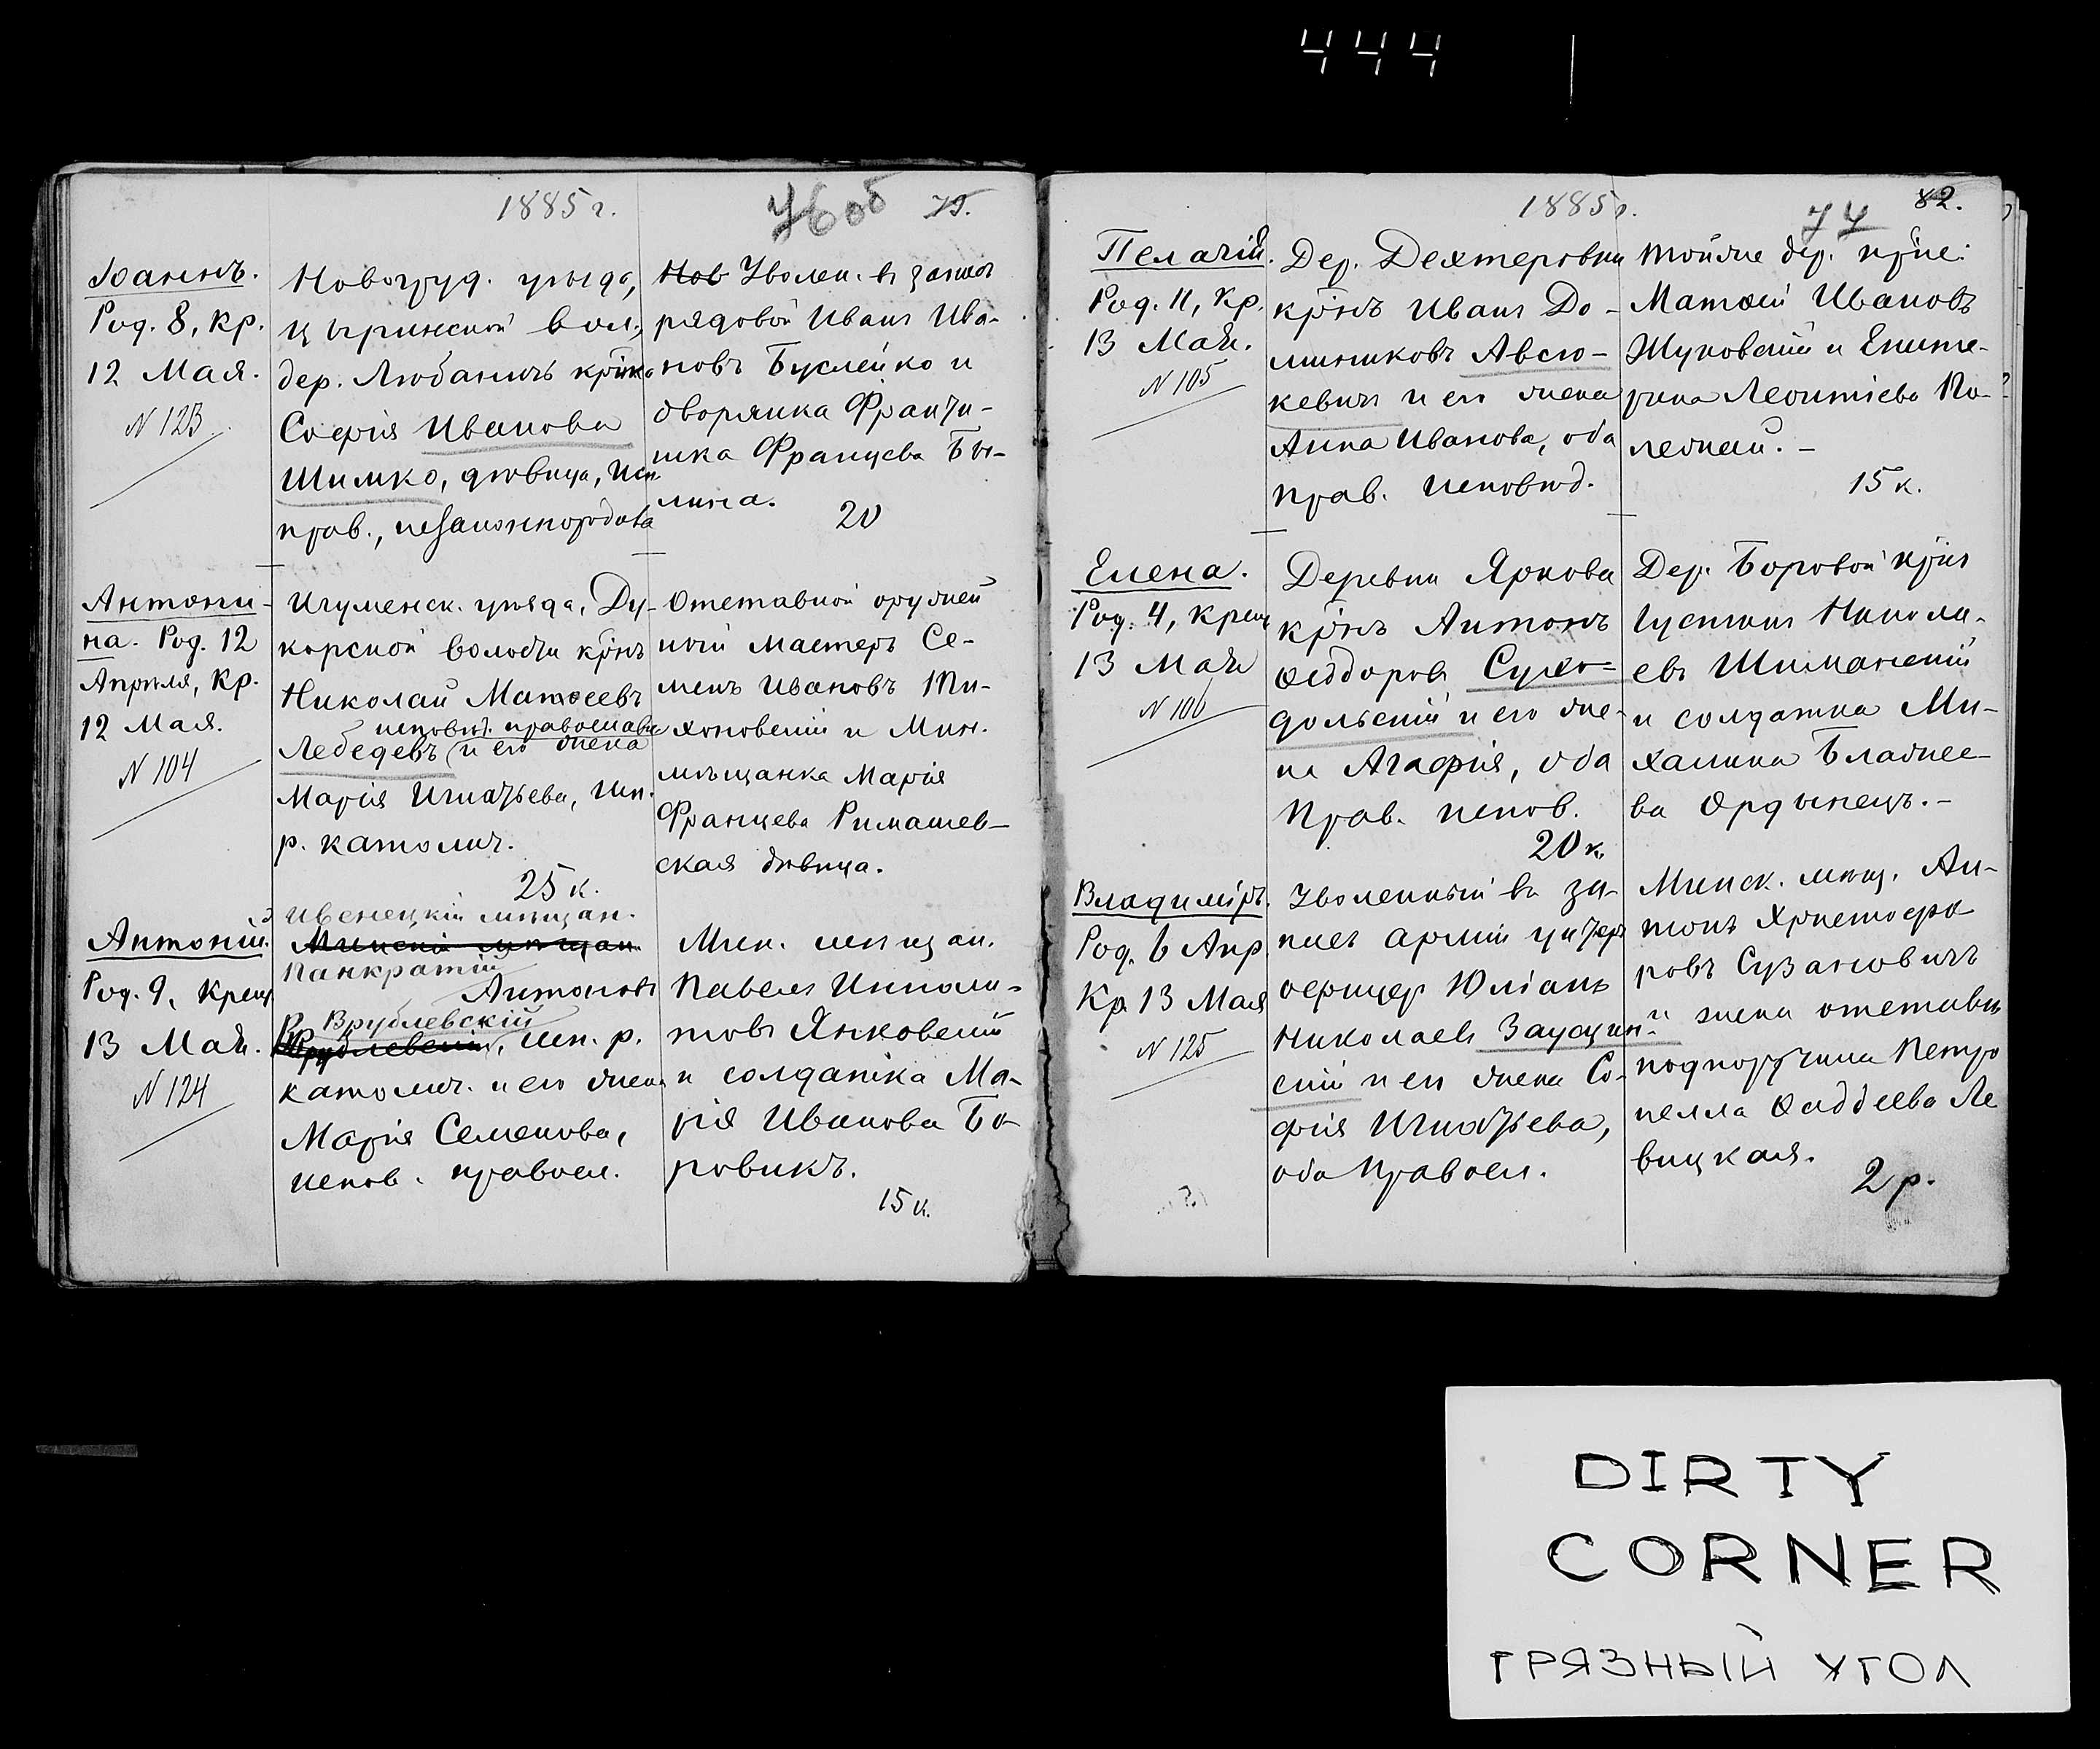 444
1885 г.
76 об
75.
Іоаннъ.
Род. 8, Кр.
12 Мая.
N 123
Новогруд. уѣзда,
Цыринской вол.,
дер. Любаничъ кр-нка
Софія Иванова
Шимко, дѣвица, исп.
прав., незаконнорожд.
Нов Уволен. въ запас
рядовой Иванъ Ива-
новъ Буслейко и
дворянка Франти-
шка Францева Бы-
лина.
20
Антони-
на. Род. 12
Апрѣля, Кр.
12 Мая.
N 104
Игуменск. уѣзда, Ду-
корской волости кр-нъ
Николай Матѳеевъ
исповѣд. православн
Лебедевъ (и его жена
Марія Игнатьева, исп.
р. католич.
25 к.
Отставной оружей
ный мастеръ Се-
менъ Ивановъ Ти-
хоновскій и Мин.
мѣщанка Марія
Францева Римашев-
ская дѣвица.
Антоній.
Род. 9, Крещ
13 Мая.
N 124
Ивенецкій мѣщан.
Минскій мѣщан.
Панкратій
Антоновъ
Врублевскій
Врублевскій, исп. р.
католич. и его жена
Марія Семенова,
испов. правосл.
Мин. мѣщан.
Павелъ Ипполи-
товъ Янковскій
и солдатка Ма-
рія Иванова Бо-
ровикъ.
15 к.
1885 г.
77
82.
Пелагій.
Род. 11, Кр.
13 Мая.
N 105
Дер. Дехтеровки
кр-нъ Иванъ До-
миниковъ Авсю-
кевичъ и его жена
Анна Иванова, оба
прав. исповѣд.
Тойже дер. кр-не:
Матѳей Ивановъ
Жуковскій и Екате-
рина Леонтіева По-
лежай. -
15 к.
Елена.
Род. 4, Крещ
13 Мая
N 106
Деревни Яркова
кр-нъ Антонъ
Ѳеддоровъ Сухо-
дольскій и его же-
на Агафія, оба
прав. испов.
20 к.
Дер. Боровой кр-нъ
Іустинъ Никола-
евъ Шиманскій
и солдатка Ми-
халина Блажее-
ва Ордынецъ. -
Владиміръ.
Род. 6 Апр.
Кр. 13 Мая
N 125
Уволенный въ за-
пасъ арміи унтеръ
офицеръ Юліанъ
Николаевъ Заусцин-
скій и его жена Со-
фія Игнатьева,
оба правосл.
Минск. мѣщ. Ан-
тонъ Христофо-
ровъ Сузановичъ
и жена отставн
подпоручика Петро
нелла Ѳаддеева Ле
вицкая.
2 р.
DIRTY
CORNER
ГРЯЗНЫЙ УГОЛ